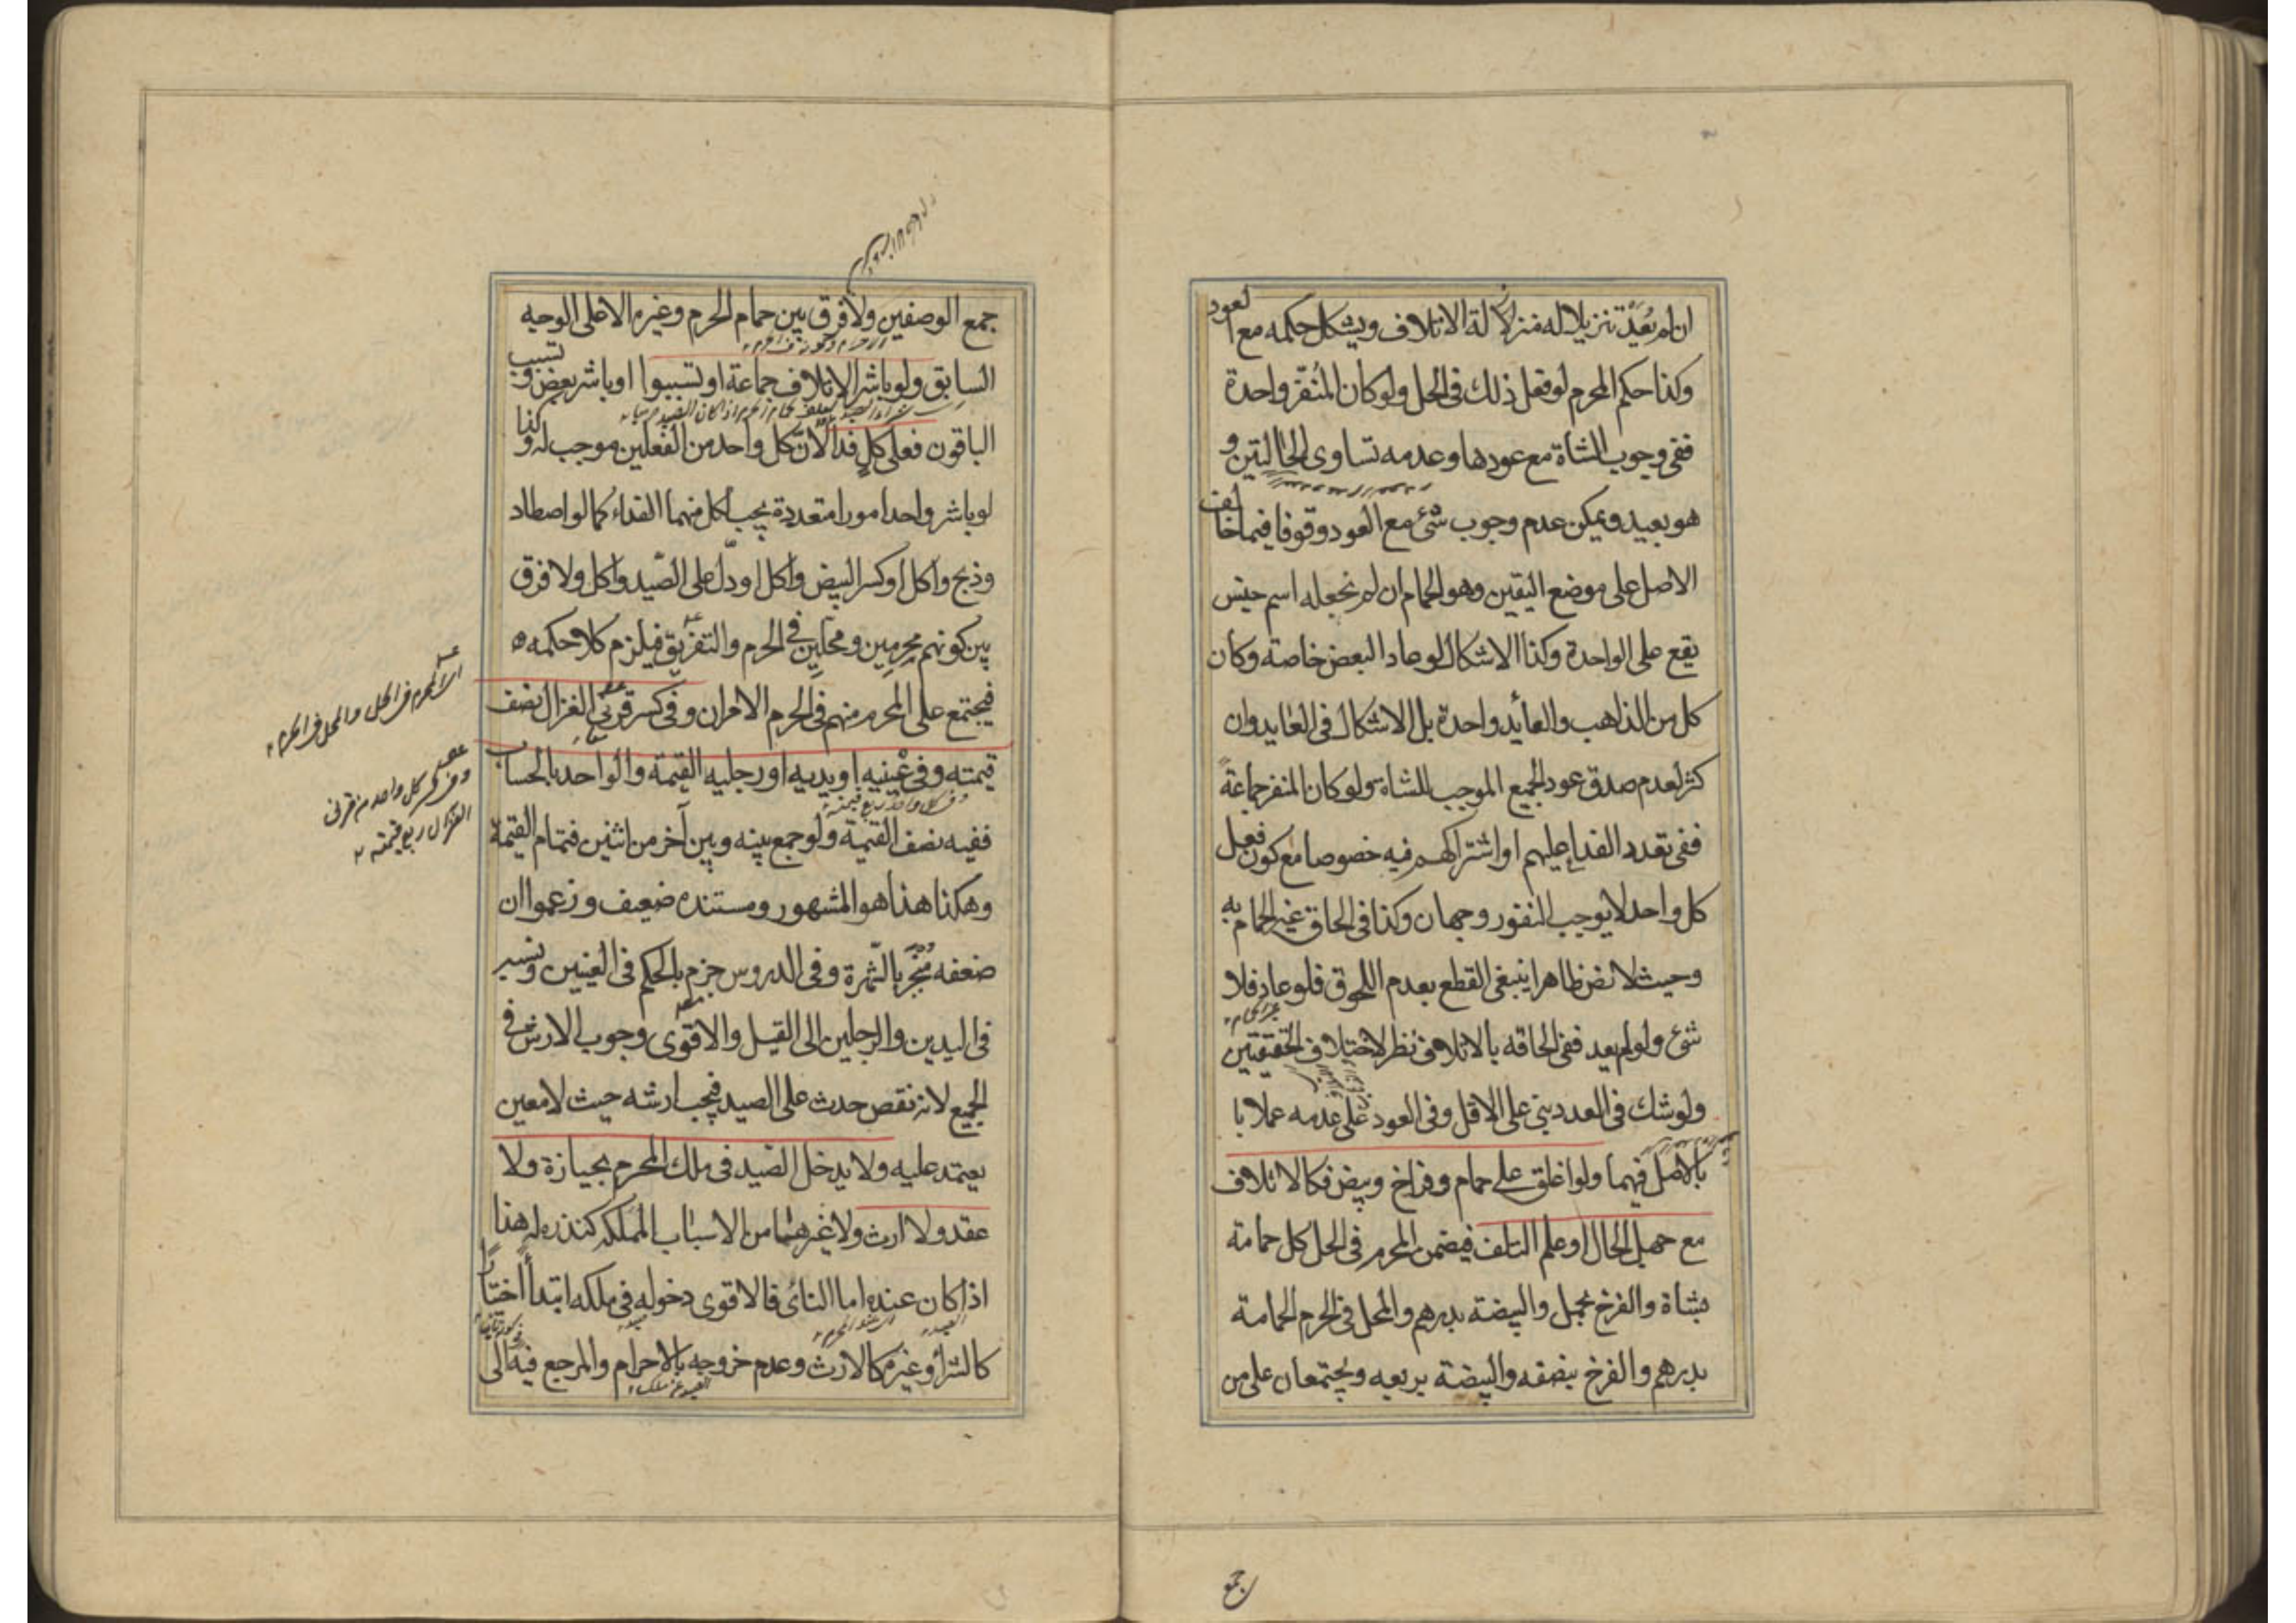 ان لم يعد تنزيلا له منزلة الاتلاف ويشكل حكمه مع العود
وكذا حكم المحرم لو فعل ذلك فى الحل ولو كان المُنفّر واحدة
ففى وجوب الشاة مع عودها وعدمه تساوى الحالتين و
هو بعيد ويمكن عدم وجوب شئ مع العود وقوفا فيما خالف
الاصل على موضع اليقين وهو الحمام ان لم نجعله اسم جنس
يقع على الواحدة وكذا الاشكال لو عاد البعض خاصة وكان
كل من الذاهب والعائد واحدة بل الاشكال فى العايد وان
كثر لعدم صدق عود الجميع الموجب للشاة ولو كان المنفر جماعةً
ففى تعدد الفداء عليهم او اشتراكهم فيه خصوصا مع كون فعل
كل واحد لا يوجب النفور وجهان وكذا فى الحاق غير الحمام به
وحيث لا نص ظاهرا ينبغى القطع بعدم اللحوق فلو عاد فلا
شئ ولو لم يعد ففى الحاقه بالاتلاف نظر لاختلاف الحقيقتين
ولو شك فى العدد بنى على الاقل وفى العود على عدمه عملا با
بالاصل فيهما ولو اغلق على حمام وفراخ وبيض فكالاتلاف
مع جهل الحال او علم التلف فيضمن المحرم فى الحل كل حمامة
بشاة والفرخ بحمل والبيضة بدرهم والمحل فى الحرم الحمامة
بدرهم والفرخ بنصفه والبيضة بربعه ويجتمعان على من
جمع
جمع الوصفين ولا فرق بين حمام الحرم وغيره الا على الوجه
السابق ولو باشر الاتلاف جماعة او تسببوا او باشر بعض وتسبب
الباقون فعلى كلٍ فداء لان كل واحد من الفعلين موجب له وكذا
لو باشر واحد امورا متعددة يجب لكل منها الفداء كما لو اصطاد
وذبح واكل او كسر البيض واكل او دلّ على الصّيد واكل ولا فرق
بين كونهم محرمين ومحلين فى الحرم والتفريق فيلزم كلا حكمه
فيجتمع على المحرم منهم فى الحرم الامران وفى كسر قرنى الغزال نصف
قيمته وفى عينيه او يديه او رجليه القيمة والواحد بالحساب
ففيه نصف القيمة ولو جمع بينه وبين آخر من اثنين فتمام القيمة
وهكذا هذا هو المشهور ومستنده ضعيف وزعموا ان
ضعفه منجبر بالشهرة وفى الدروس جزم بالحكم فى العينين ونسبه
فى اليدين والرجلين الى القيل والاقوى وجوب الارش فى
الجميع لانه نقص حدث على الصيد فيجب ارشه حيث لا معين
يعتمد عليه ولا يدخل الصيد فى ملك المحرم بحيازة ولا
عقد ولا ارث ولا غيرهما من الاسباب المملكة كنذره له هذا
اذا كان عنده اما النائى فالاقوى دخوله فى ملكه ابتداءً اختيارًا
كالشراء وغيره كالارث وعدم خروجه بالاحرام والمرجع فيه الى
اى المحرم فى الحل والمحل فى الحرم
وفى كسر كل واحد من قرنى
الغزال ربع قيمته